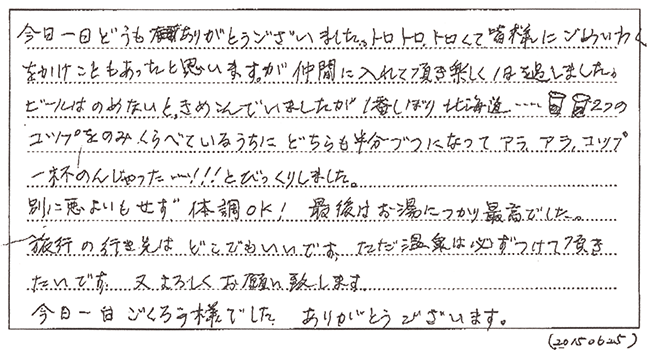 今日一日どうもありがとうございました。トロトロ、トロくて皆様にごめいわく
をかけこともあったと思います。が仲間に入れて頂き楽しく1日を過しました。
ビールはのめないと、きめこんでいましたが1番しぼり 北海道……2つの
コップをのみくらべているうちに どちらも半分づつになって アラ、アラ、コップ
一杯のんじゃった……!!!とびっくりしました。
別に悪よいもせず 体調OK! 最後はお湯につかり最高でした。
旅行の行き先は どこでもいいです。ただ温泉は必ずつけて頂き
たいです。又よろしくお願い致します。
今日一日 ごくろう様でした ありがとうございます。
(20150625)